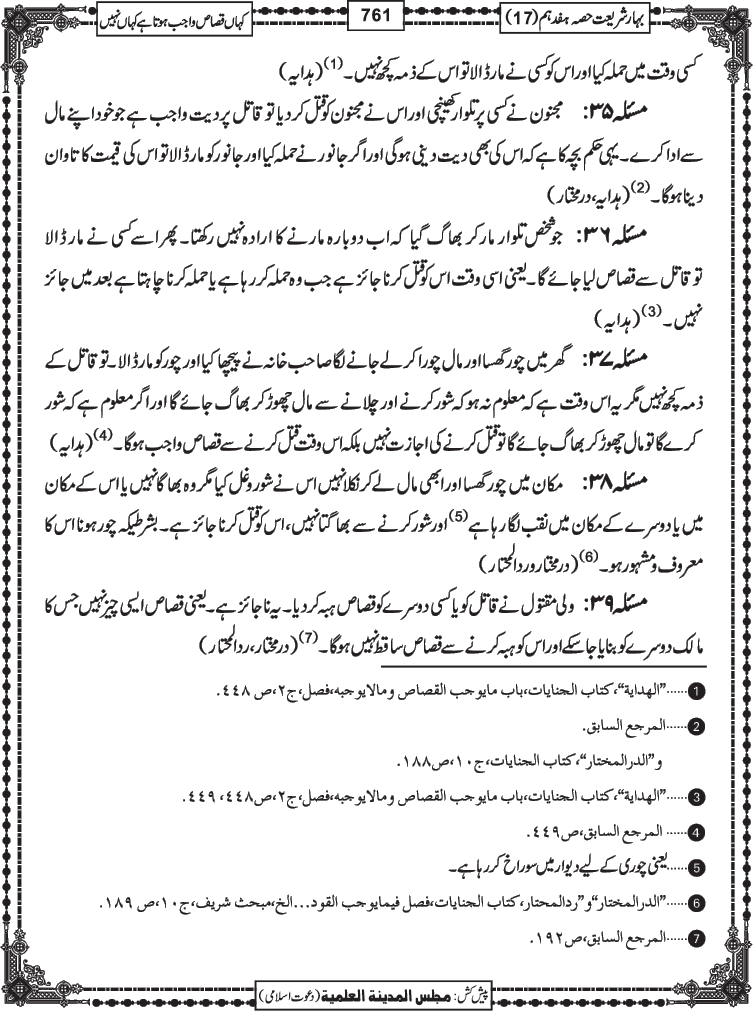 بہار شریعت حصہ ہفدہم (17)
761
کہاں قصاص واجب ہوتا ہے کہاں نہیں
کسی وقت میں حملہ کیا اور اس کو کسی نے مار ڈالا تو اس کے ذمہ کچھ نہیں۔(1) (ہدایہ)
مسئلہ ۳۵: مجنون نے کسی پر تلوار کھینچی اور اس نے مجنون کو قتل کر دیا تو قاتل پر دیت واجب ہے جو خود اپنے مال
سے ادا کرے۔ یہی حکم بچہ کا ہے کہ اس کی بھی دیت دینی ہوگی اور اگر جانور نے حملہ کیا اور جانور کو مار ڈالا تو اس کی قیمت کا تاوان
دینا ہوگا۔(2) (ہدایہ، درمختار)
مسئلہ ۳۶: جو شخص تلوار مار کر بھاگ گیا کہ اب دوبارہ مارنے کا ارادہ نہیں رکھتا۔ پھر اسے کسی نے مار ڈالا
تو قاتل سے قصاص لیا جائے گا۔ یعنی اسی وقت اس کو قتل کرنا جائز ہے جب وہ حملہ کر رہا ہے یا حملہ کرنا چاہتا ہے بعد میں جائز
نہیں۔(3) (ہدایہ)
مسئلہ ۳۷: گھر میں چور گھسا اور مال چورا کر لے جانے لگا صاحب خانہ نے پیچھا کیا اور چور کو مار ڈالا۔ تو قاتل کے
ذمہ کچھ نہیں مگر یہ اس وقت ہے کہ معلوم نہ ہو کہ شور کرنے اور چلانے سے مال چھوڑ کر بھاگ جائے گا اور اگر معلوم ہے کہ شور
کرے گا تو مال چھوڑ کر بھاگ جائے گا تو قتل کرنے کی اجازت نہیں بلکہ اس وقت قتل کرنے سے قصاص واجب ہوگا۔(4) (ہدایہ)
مسئلہ ۳۸: مکان میں چور گھسا اور ابھی مال لے کر نکلا نہیں اس نے شور و غل کیا مگر وہ بھاگا نہیں یا اس کے مکان
میں یا دوسرے کے مکان میں نقب لگا رہا ہے(5) اور شور کرنے سے بھاگتا نہیں، اس کو قتل کرنا جائز ہے۔ بشرطیکہ چور ہونا اس کا
معروف و مشہور ہو۔(6) (درمختار و ردالمحتار)
مسئلہ ۳۹: ولی مقتول نے قاتل کو یا کسی دوسرے کو قصاص ہبہ کر دیا۔ یہ ناجائز ہے۔ یعنی قصاص ایسی چیز نہیں جس کا
مالک دوسرے کو بنایا جا سکے اور اس کو ہبہ کرنے سے قصاص ساقط نہیں ہوگا۔(7) (درمختار، ردالمحتار)
1......"الهداية"، كتاب الجنايات، باب مايوجب القصاص ومالايوجبه، فصل، ج٢، ص ٤٤٨.
2......المرجع السابق.
و"الدرالمختار"، كتاب الجنايات، ج١٠، ص١٨٨.
3......"الهداية"، كتاب الجنايات، باب مايوجب القصاص ومالايوجبه، فصل، ج٢، ص٤٤٨، ٤٤٩.
4...... المرجع السابق، ص٤٤٩.
5......یعنی چوری کے لیے دیوار میں سوراخ کر رہا ہے۔
6......"الدرالمختار"و"ردالمحتار، كتاب الجنايات، فصل فيمايوجب القود...الخ، مبحث شريف، ج١٠، ص ١٨٩.
7......المرجع السابق، ص١٩٢.
پیش کش: مجلس المدينة العلمية (دعوت اسلامی)